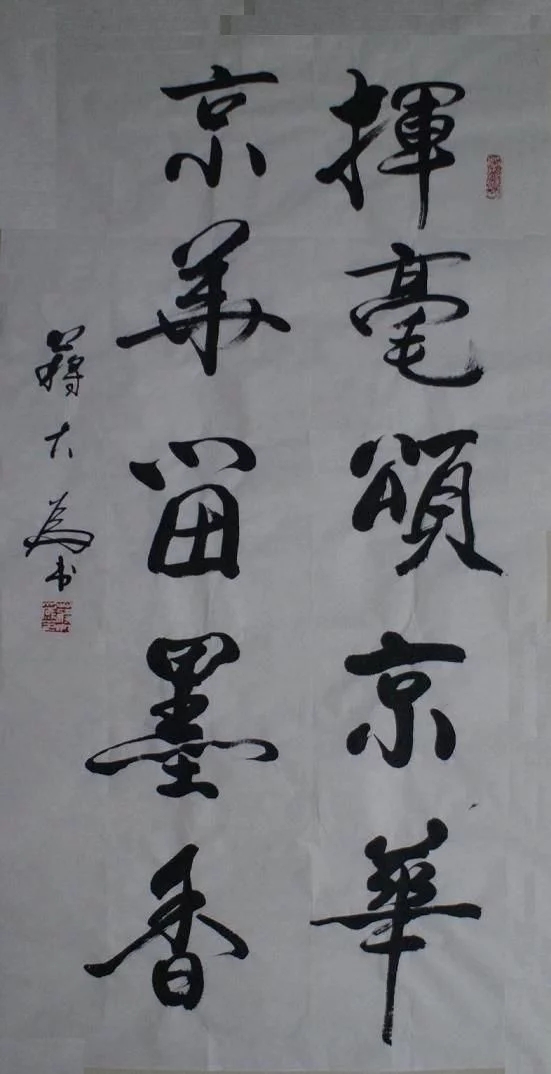 揮毫頌京華
京華留墨香
蔣大為书